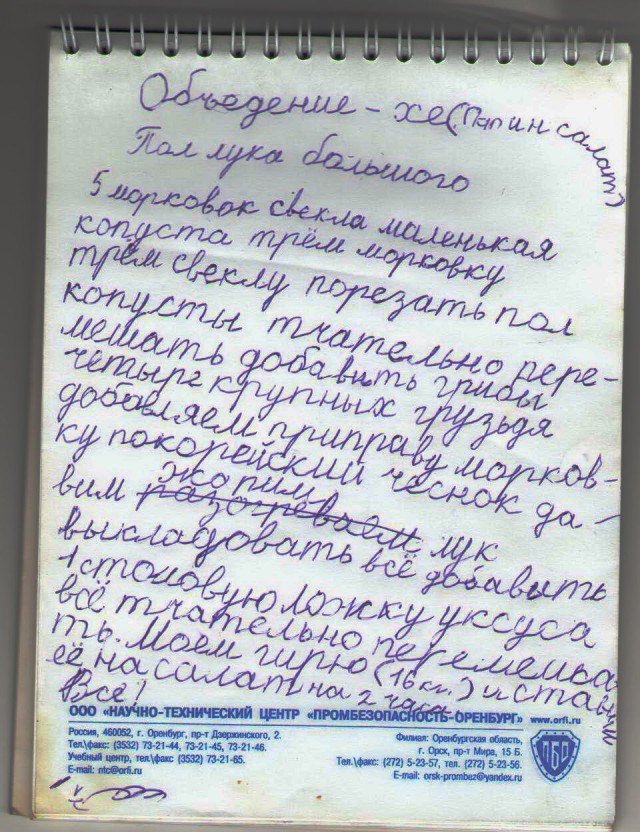 Объедение - хе (Папин салат)
Пол лука большого
5 морковок свекла маленькая
копуста трём морковку
трём свеклу порезать пол
копусты тчательно пере-
мешать добавить грибы
четыре крупных груздя
добавляем приправу морков-
ку покорейский чеснок да-
вим разогреваем жопим лук
выкладовать всё добавить
1 столовую ложку уксуса
всё тчательно перемешать
ть. Моем гирю (16 кг.) и ставим
её на салат на 2 часа
Всё!
ООО «НАУЧНО-ТЕХНИЧЕСКИЙ ЦЕНТР «ПРОМБЕЗОПАСНОСТЬ-ОРЕНБУРГ» www.orfi.ru
Россия, 460052, г. Оренбург, пр-т Дзержинского, 2.
Тел.\факс: (3532) 73-21-44, 73-21-45, 73-21-46.
Учебный центр, тел.\факс (3532) 73-21-65.
E-mail: ntc@orfi.ru
Филиал: Оренбургская область,
г. Орск, пр-т Мира, 15 Б.
Тел.\факс: (272) 5-23-57, тел. (272) 5-23-56.
E-mail: orsk-prombez@yandex.ru
ПБО